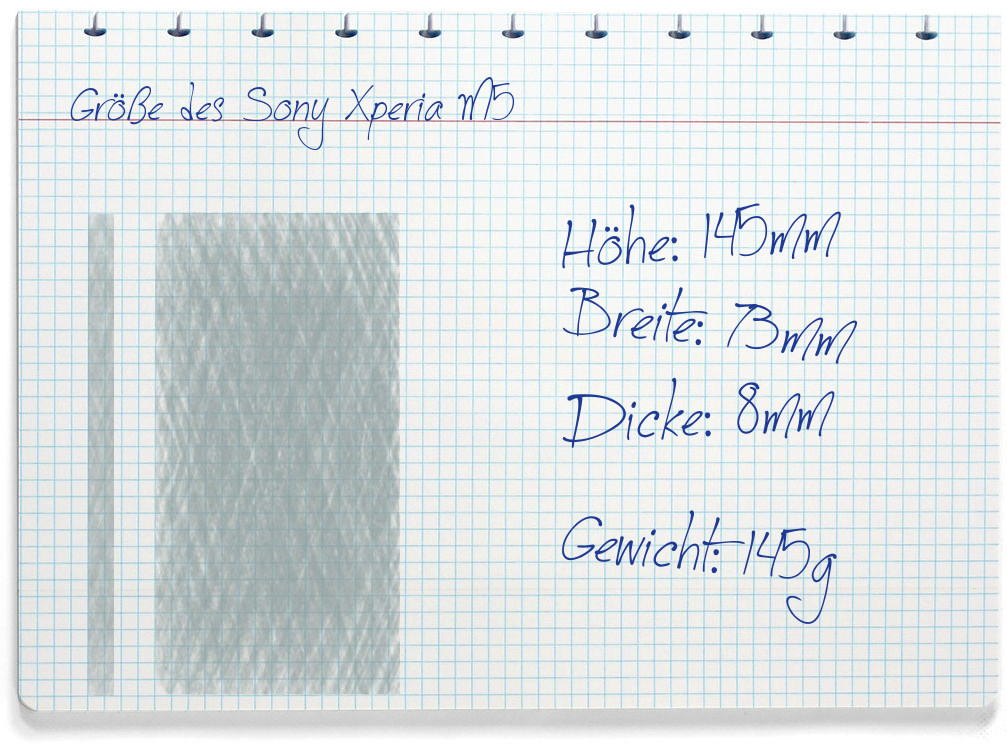 Größe des Sony Xperia M5
Höhe: 145mm
Breite: 73mm
Dicke: 8mm
Gewicht: 145g